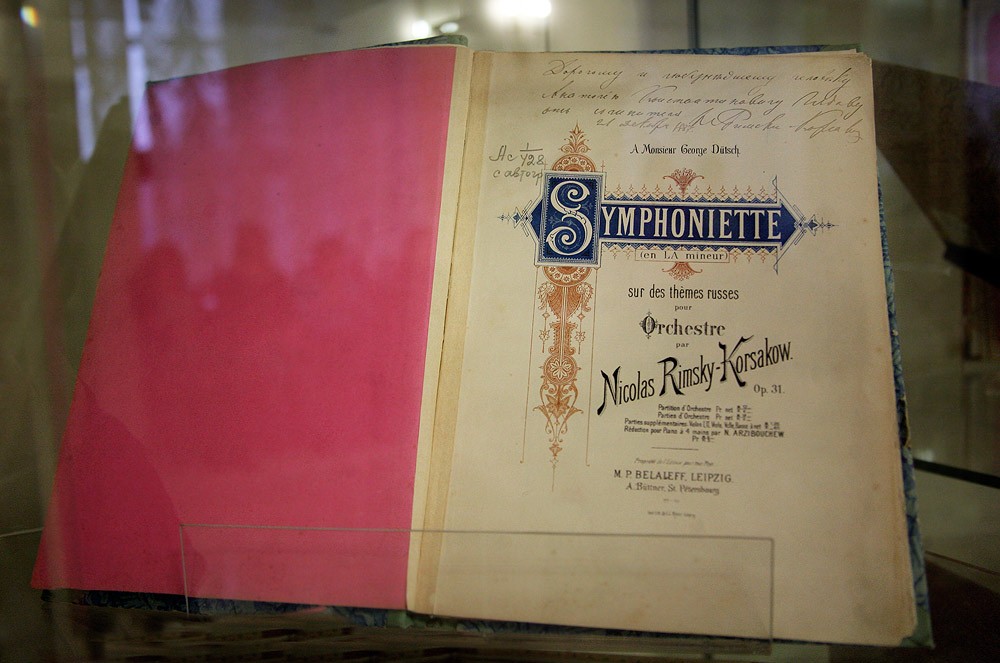 Дорогому и
Анатолію Константиновичу Лядову
отъ
21 Н. Римскій-Корсаковъ
Ас 1/428
с автогр
A Monsieur George Dütsch.
SYMPHONIETTE
(en LA mineur)
sur des thèmes russes
pour
Orchestre
par
Nicolas Rimsky-Korsakow.
Op. 31.
Partition d'Orchestre Pr. net
Parties d'Orchestre Pr. net
Parties supplémentaires
Réduction pour Piano à 4 mains par N. ARZIBOUCHEW
Pr.
M. P. BELAÏEFF, LEIPZIG.
A. Büttner, St. Pétersbourg.